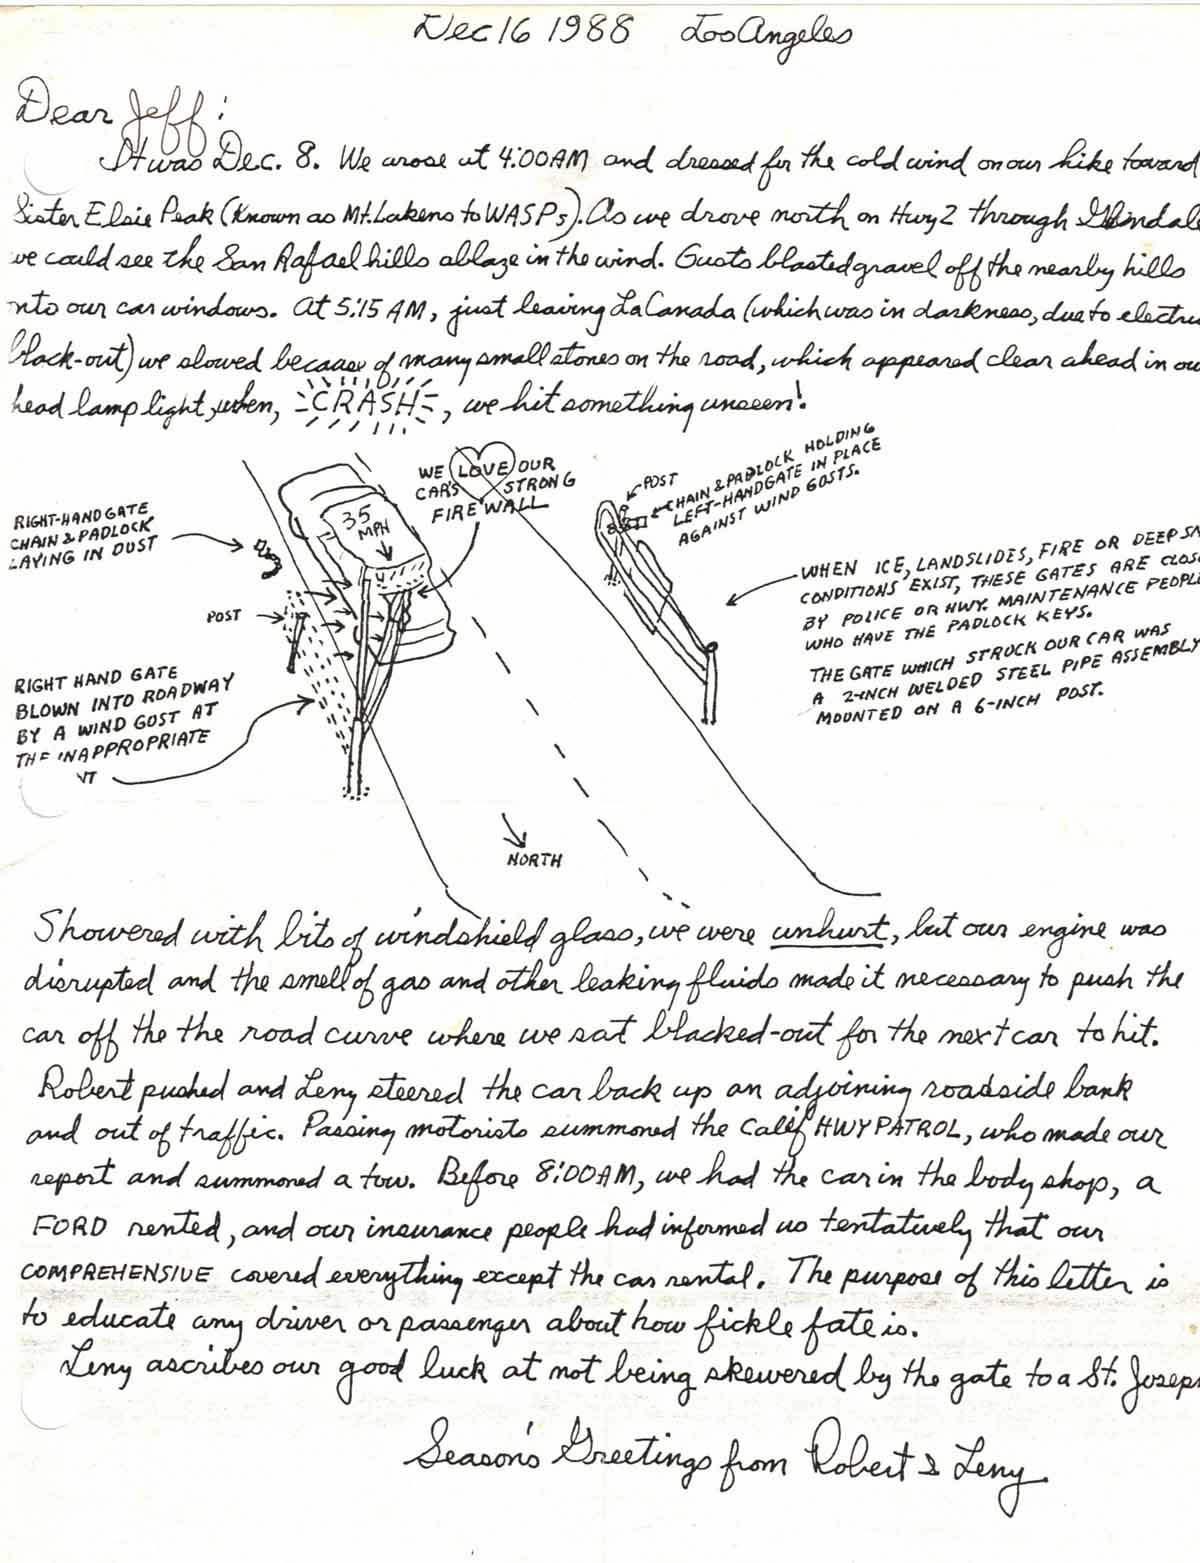 Dec 16 1988 Los Angeles
Dear Jeff:
It was Dec. 8. We arose at 4:00AM and dressed for the cold wind on our hike toward
Sister Elsie Peak (Known as Mt. Lukens to WASPs). As we drove north on Hwy 2 through Glendale
we could see the San Rafael hills ablaze in the wind. Gusts blasted gravel off the nearby hills
nto our car windows. At 5:15 AM, just leaving La Canada (which was in darkness, due to electric
black-out) we slowed because of many small stones on the road, which appeared clear ahead in our
head lamp light, when, CRASH, we hit something unseen!
WE LOVE OUR
CAR'S STRONG
FIRE WALL
35
MPH
RIGHT-HAND GATE
CHAIN & PADLOCK
LAYING IN DUST
POST
RIGHT HAND GATE
BLOWN INTO ROADWAY
BY A WIND GUST AT
THE INAPPROPRIATE
NT
POST
CHAIN & PADLOCK HOLDING
LEFT-HAND GATE IN PLACE
AGAINST WIND GOSTS.
WHEN ICE, LANDSLIDES, FIRE OR DEEP SN
CONDITIONS EXIST, THESE GATES ARE CLOS
BY POLICE OR HWY. MAINTENANCE PEOPLE
WHO HAVE THE PADLOCK KEYS.
THE GATE WHICH STRUCK OUR CAR WAS
A 2-INCH WELDED STEEL PIPE ASSEMBLY
MOUNTED ON A 6-INCH POST.
NORTH
Showered with bits of windshield glass, we were unhurt, but our engine was
disrupted and the smell of gas and other leaking fluids made it necessary to push the
car off the the road curve where we sat blacked-out for the next car to hit.
Robert pushed and Leny steered the car back up an adjoining roadside bank
and out of traffic. Passing motorists summoned the Calif HWY PATROL, who made our
report and summoned a tow. Before 8:00AM, we had the car in the body shop, a
FORD rented, and our insurance people had informed us tentatively that our
COMPREHENSIVE covered everything except the car rental. The purpose of this letter is
to educate any driver or passenger about how fickle fate is.
Leny ascribes our good luck at not being skewered by the gate to a St. Joseph
Season's Greetings from Robert & Leny.